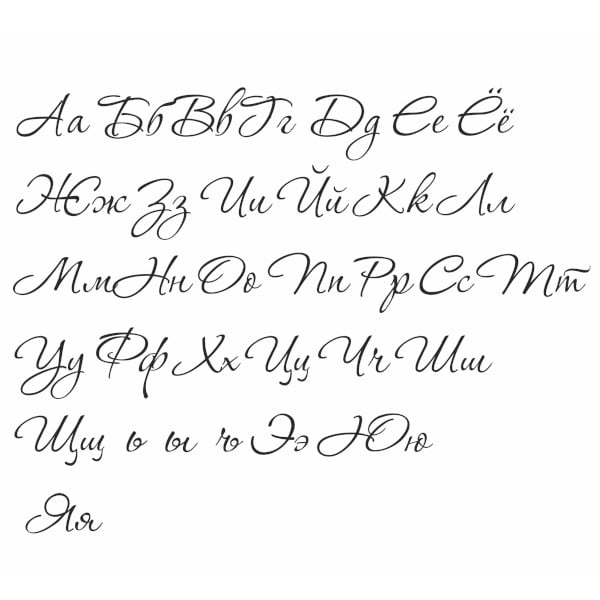 Аа Бб Вв Гг Дд Ее Ёё
Жж Зз Ии Йй Кк Лл
Мм Нн Оо Пп Рр Сс Тт
Уу Фф Хх Цц Чч Шш
Щщ ь ы ъ Ээ Юю
Яя